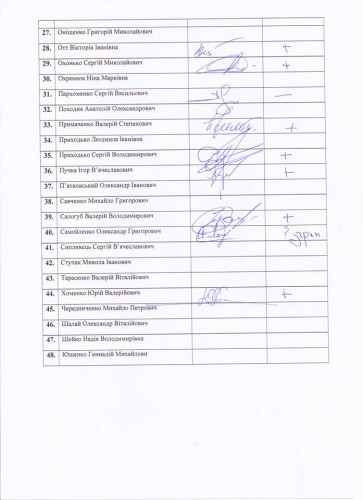 27. Онiщенко Григорiй Миколайович
28. Отт Вікторія Іванівна +
29. Охонько Сергій Миколайович +
30. Охрімюк Ніна Марківна
31. Пархоменко Сергій Васильович —
32. Походня Анатолій Олександрович
33. Примаченко Валерій Степанович +
34. Приходько Людмила Іванівна
35. Приходько Сергій Володимирович +
36. Пучка Ігор В'ячеславович +
37. П'ятковський Олександр Іванович
38. Савченко Михайло Григорович
39. Салогуб Валерій Володимирович +
40. Самойленко Олександр Григорович ?
41. Ситливець Сергій В'ячеславович
42. Ступак Микола Іванович
43. Тарасенко Валерій Віталійович
44. Хоменко Юрій Валерійович +
45. Чередниченко Михайло Петрович
46. Шалай Олександр Віталійович
47. Шейко Надія Володимирівна
48. Ющенко Геннадій Михайлови